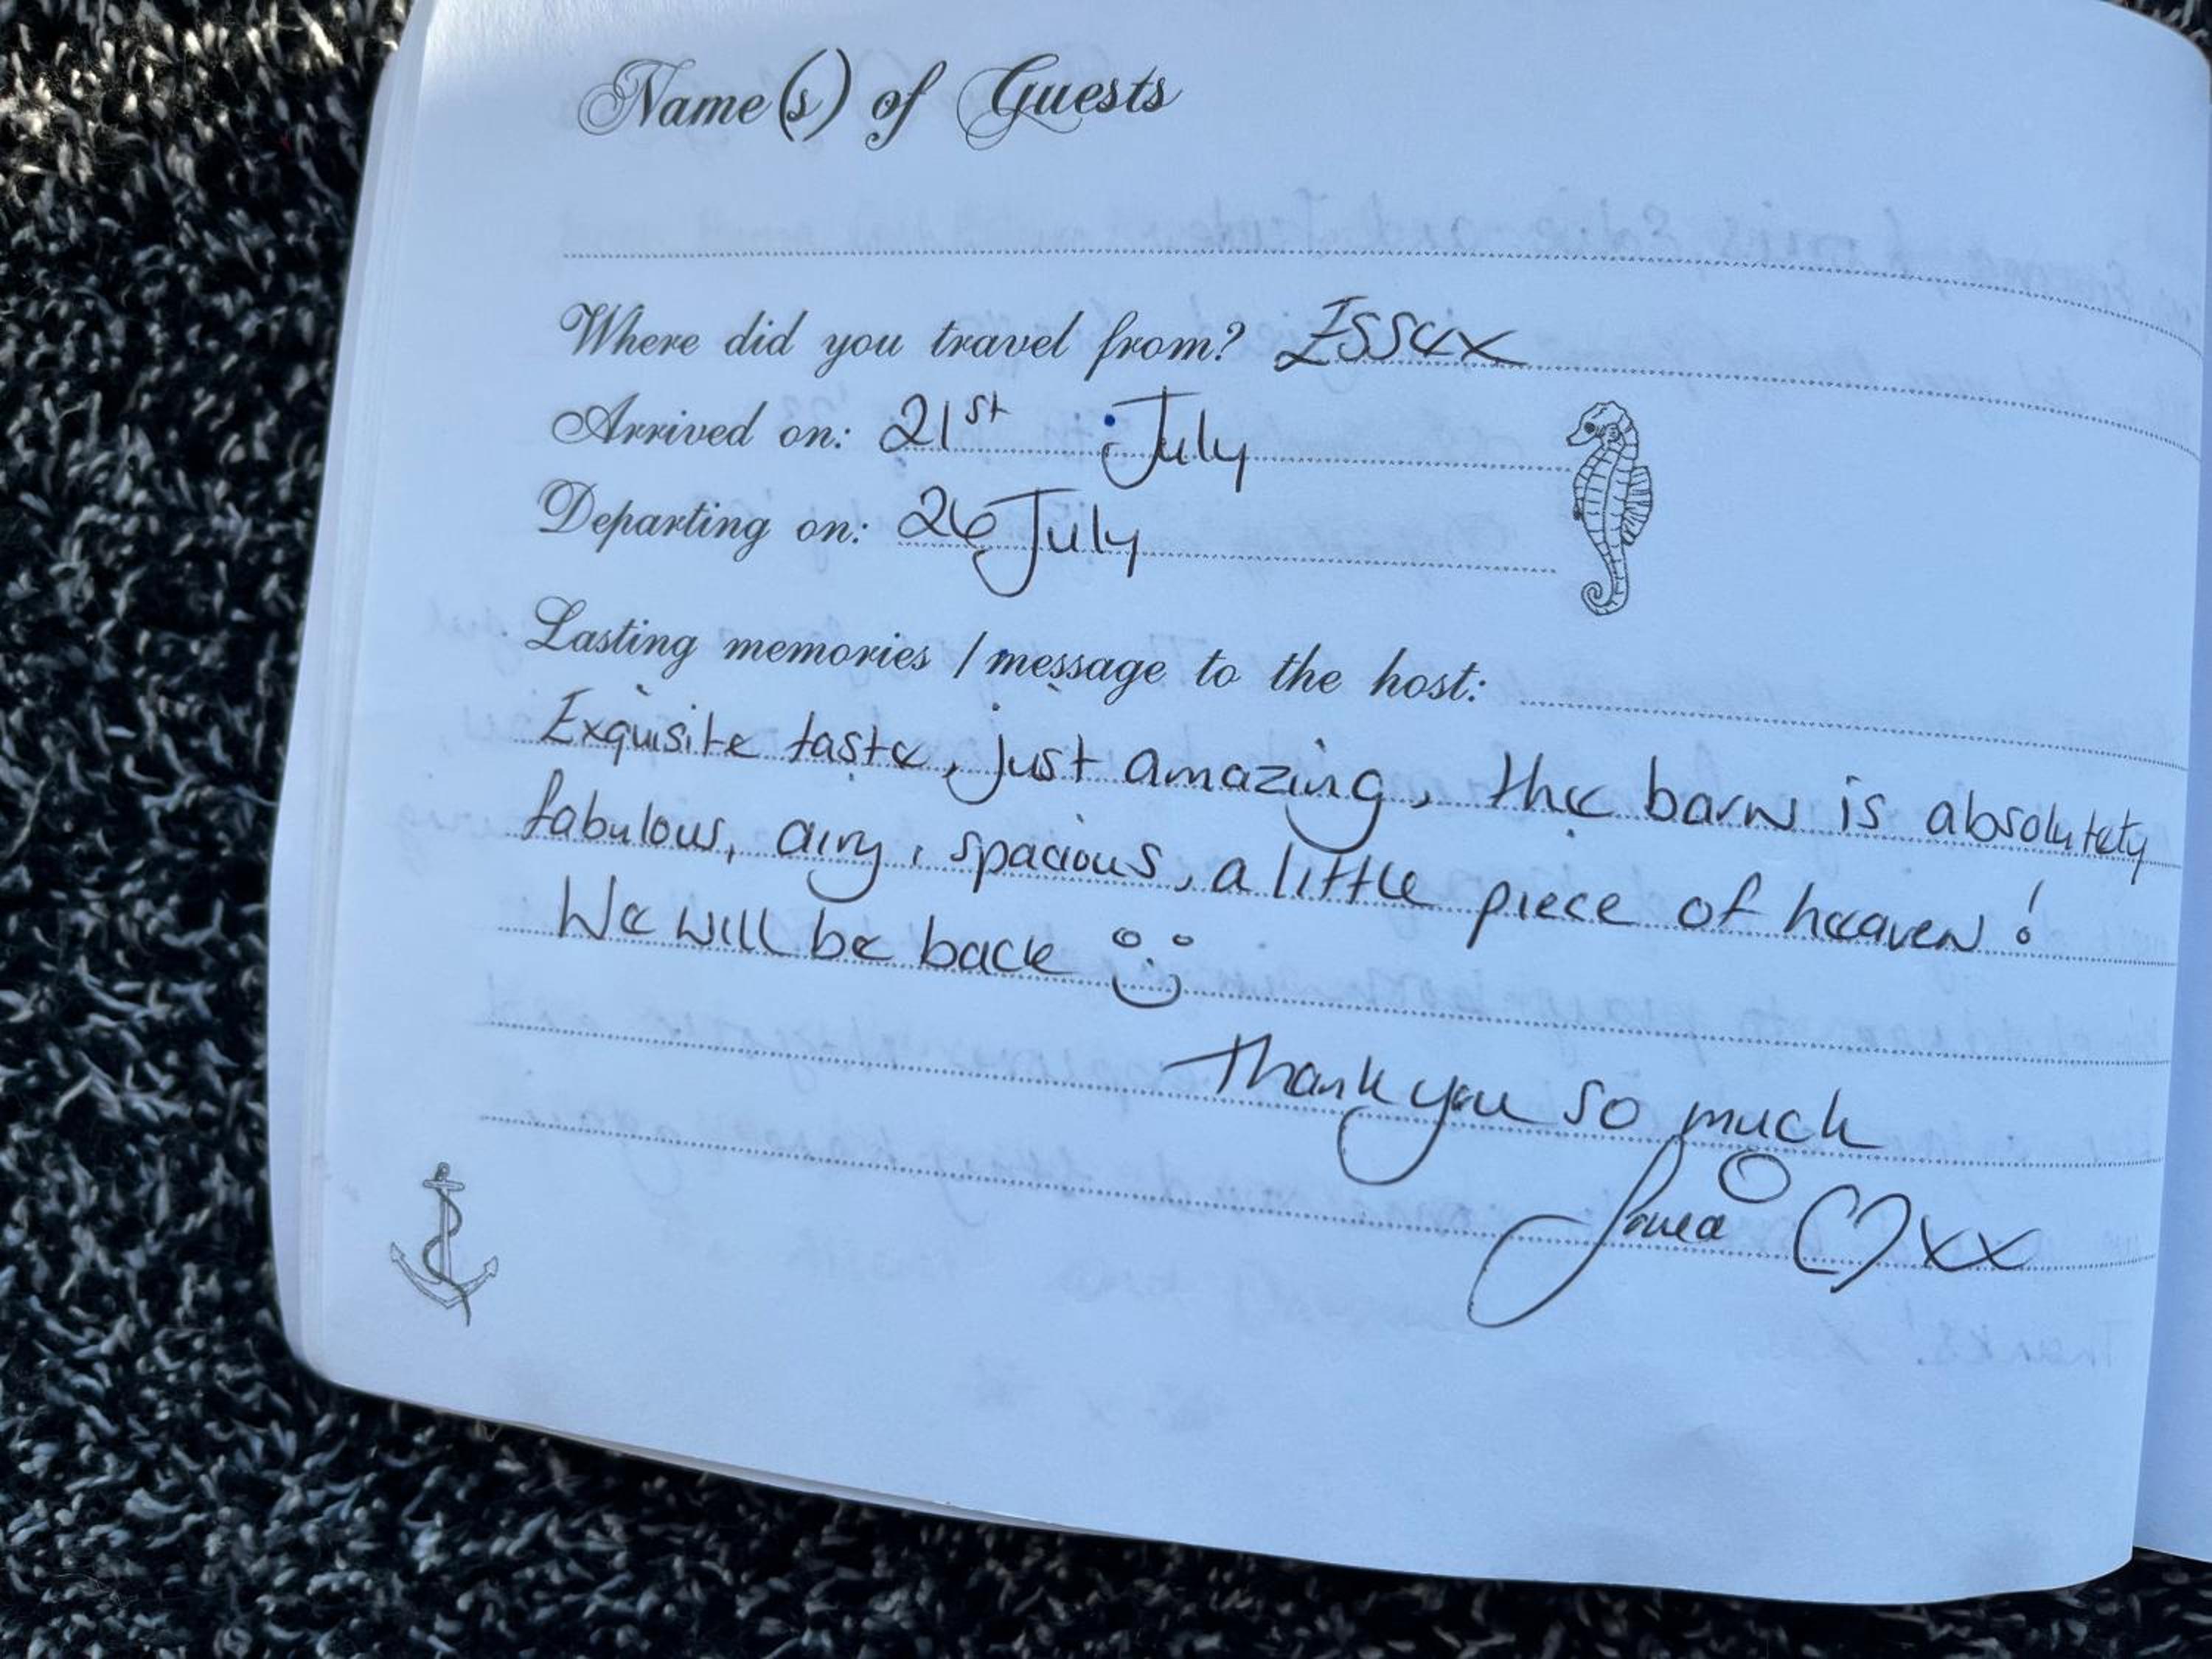 Name(s) of Guests
Where did you travel from? Essex
Arrived on: 21st July
Departing on: 26 July
Lasting memories / message to the host:
Exquisite taste, just amazing, the barn is absolutely
fabulous, airy, spacious, a little piece of heaven!
We will be back
Thank you so much
xx